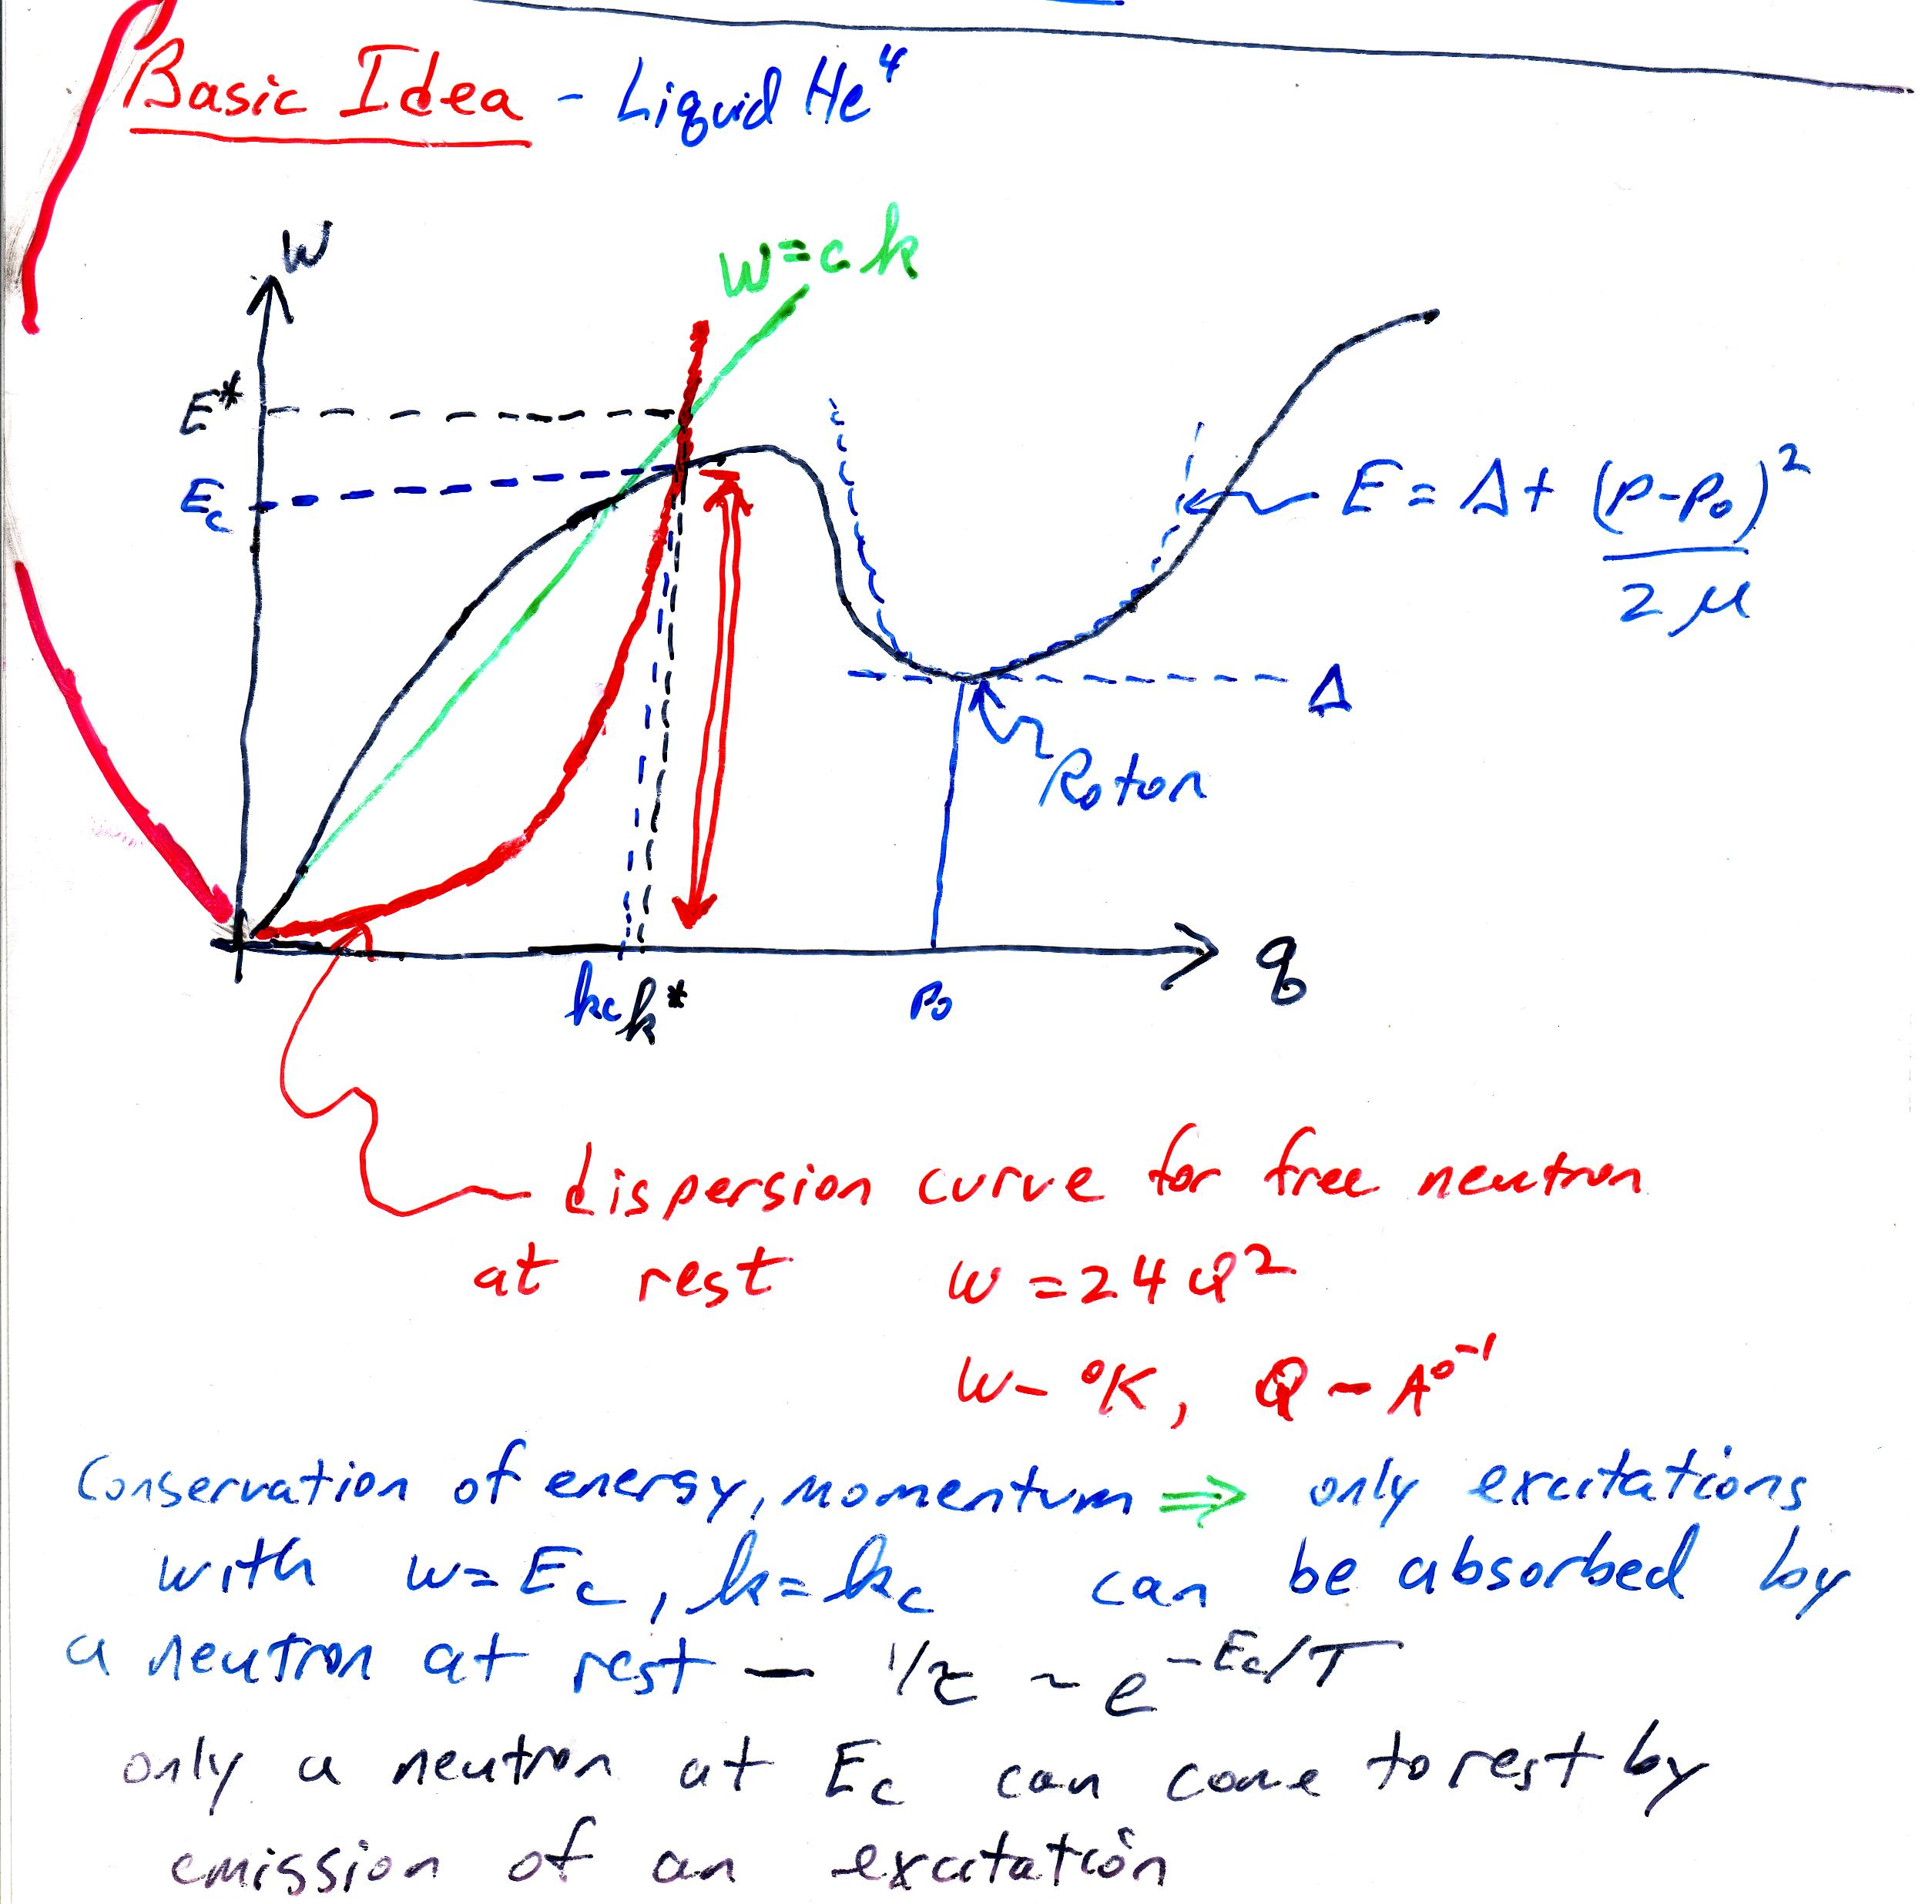 Basic Idea - Liquid He⁴
W
W=ck
E*
Ec
E = Δ + (p-p₀)²
2μ
Δ
Roton
q
kc k*
p₀
dispersion curve for free neutron
at rest w = 24Q²
W- °K, Q - A°⁻¹
Conservation of energy, momentum ⇒ only excitations
with w= Ec, k=kc can be absorbed by
a neutron at rest — 1/τ ~ e^-Ec/T
only a neutron at Ec can come to rest by
emission of an excitation